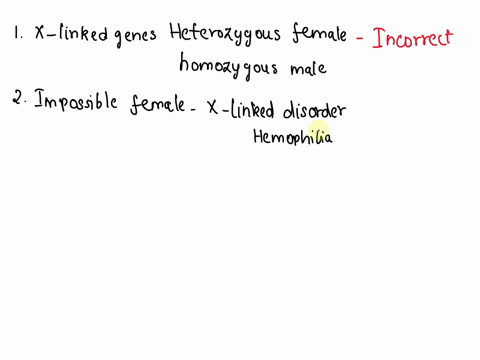 1. X-linked genes Heterozygous female - Incorrect
homozygous male
2. Impossible female - X-linked disorder
Hemophilia